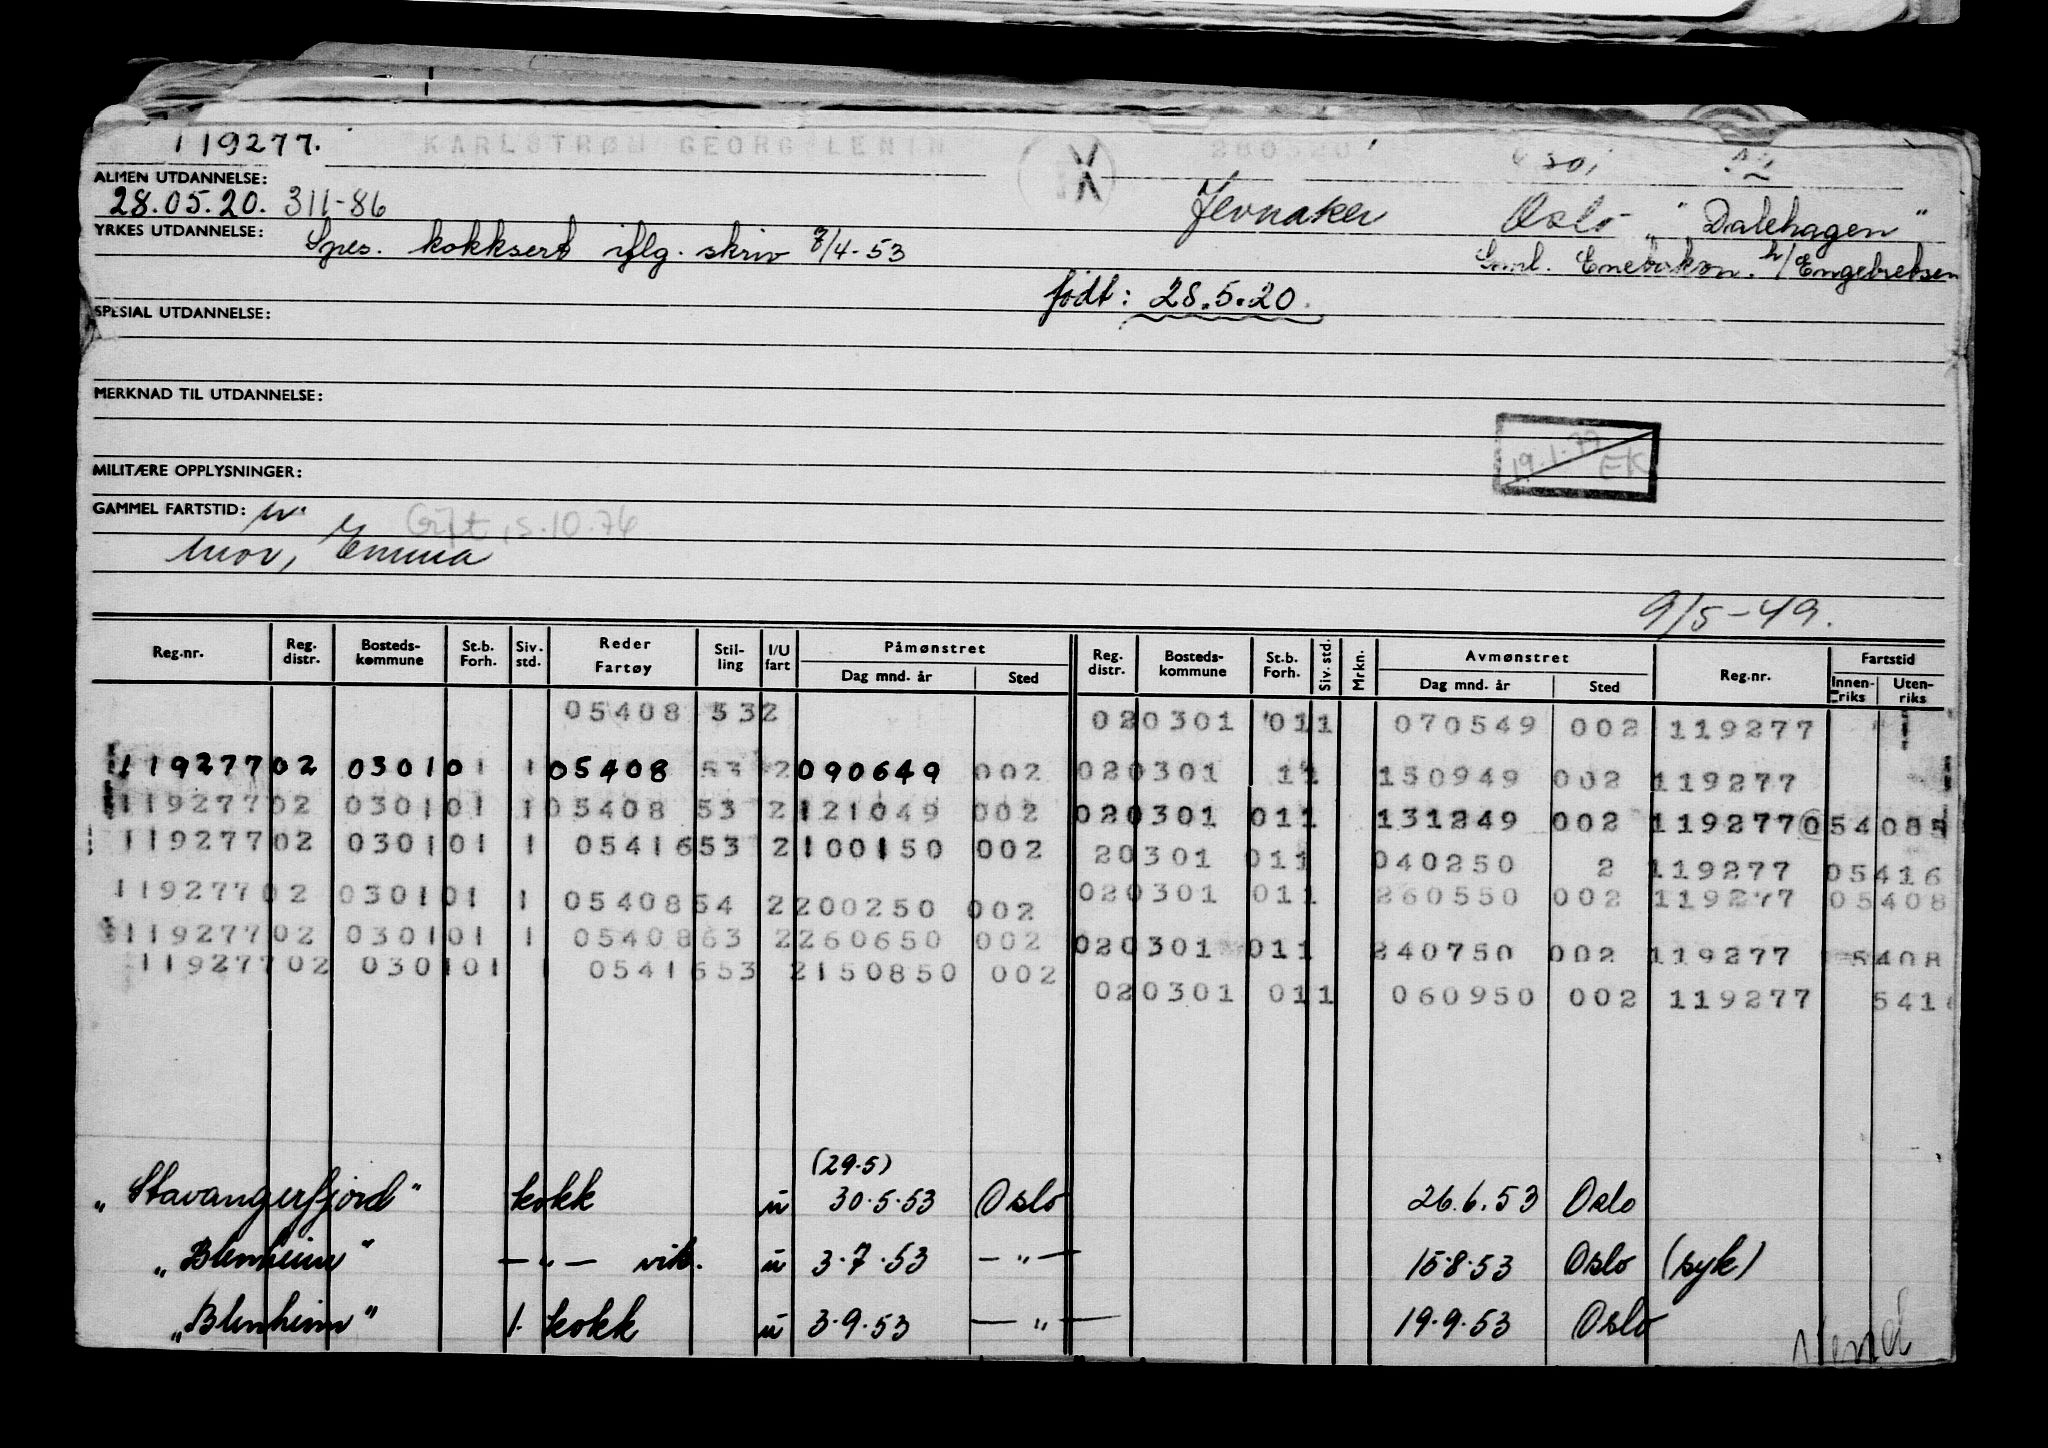 119277. KARLSTRØM GEORG LENIN 280520
ALMEN UTDANNELSE:
28.05.20. 311-86 Jevnaker Oslo "Dalehagen"
YRKES UTDANNELSE: Spes. kokksert iflg. skriv 7/4-53 Enebakkvn. h/Engebretsen
født: 28.5.20.
SPESIAL UTDANNELSE:
MERKNAD TIL UTDANNELSE:
19.1.77 EK
MILITÆRE OPPLYSNINGER:
GAMMEL FARTSTID: Gift
mor, Emma
9/5-49.
Reg.nr. Reg. distr. Bosteds-kommune St.b. Forh. Siv. std. Reder Fartøy Stil-ling I/U fart Påmønstret Dag mnd. år Sted Reg. distr. Bosteds-kommune St.b. Forh. Siv. std. Mrkn. Avmønstret Dag mnd. år Sted Reg.nr. Fartstid Innen-riks Uten-riks
05408 53 2 02 0301 01 1 070549 002 119277
119277 02 0301 01 1 05408 53 2 090649 002 02 0301 1 1 150949 002 119277
119277 02 0301 01 1 05408 53 2 121049 002 02 0301 01 1 131249 002 119277 05408
119277 02 0301 01 1 05416 53 2 100150 002 2 0301 01 1 040250 2 119277 05416
119277 02 0301 01 1 05408 54 2 200250 002 02 0301 01 1 260550 002 119277 05408
119277 02 0301 01 1 05408 63 2 260650 002 02 0301 01 1 240750 002 119277 5408
119277 02 0301 01 1 05416 53 2 150850 002 02 0301 01 1 060950 002 119277 541
(29.5)
"Stavangerfjord" kokk u 30.5.53 Oslo 26.6.53 Oslo
"Blenheim" — " — vik. u 3.7.53 — " — 15.8.53 Oslo (syk)
"Blenheim" 1. kokk u 3.9.53 — " — 19.9.53 Oslo
Vend